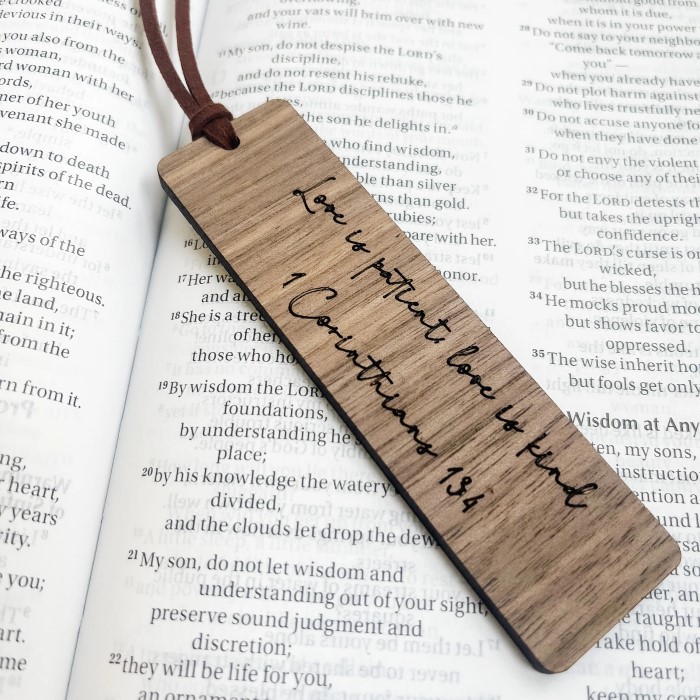 Love is patient, love is kind
1 Corinthians 13:4
crooked
devious in their ways.
you also from the
woman,
woman with her
ords,
ner of her youth
venant she made
down to death
spirits of the dead.
rn
life.
ways of the
he righteous.
he land,
main in it;
from the
rn from it.
ng,
heart,
years
rity.
you;
art.
me
and your vats will brim over with new
wine.
11 My son, do not despise the LORD's
discipline,
and do not resent his rebuke,
12 because the LORD disciplines those he
the son he delights in.a
who find wisdom,
understanding,
ble than silver
rns than gold.
rubies;
pare with her.
16 Lo
in
onor.
17 Her wa
and al
18 She is a tree
of her
those who ho
19 By wisdom the LORD
foundations,
by understanding he s
place;
20 by his knowledge the watery
divided,
and the clouds let drop the dew.
21 My son, do not let wisdom and
understanding out of your sight,
preserve sound judgment and
discretion;
22 they will be life for you,
an ornament
good from
whom it is due,
when it is in your power
28 Do not say to your neighbor
"Come back tomorrow a
you" —
when you already have
29 Do not plot harm against
who lives trustfully ne
30 Do not accuse anyone fo
when they have done
31 Do not envy the violent
or choose any of their
32 For the LORD detests th
but takes the upright
confidence.
33 The LORD's curse is on
wicked,
but he blesses the h
34 He mocks proud moc
but shows favor t
oppressed.
35 The wise inherit hon
but fools get only
Wisdom at Any
en, my sons,
instruction
ention a
und l
so
er, an
taught
Take hold of
heart;